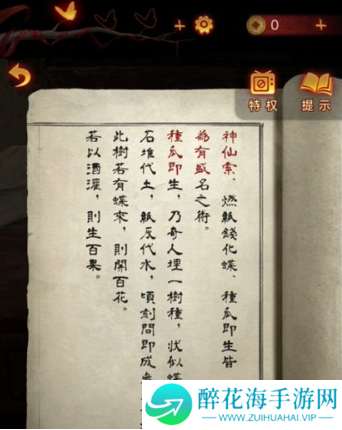 0
特权
提示
神仙索、燃紙錢化蝶、種瓜即生皆
為有盛名之術。
種瓜即生，乃奇人埋一樹種，狀似蝶
石堆代土，紙灰代水，頃刻間即成
此樹若有蝶來，則開百花。
若以酒灌，則生百果。
醉花海手游网
WWW.ZUIHUAHAI.VIP